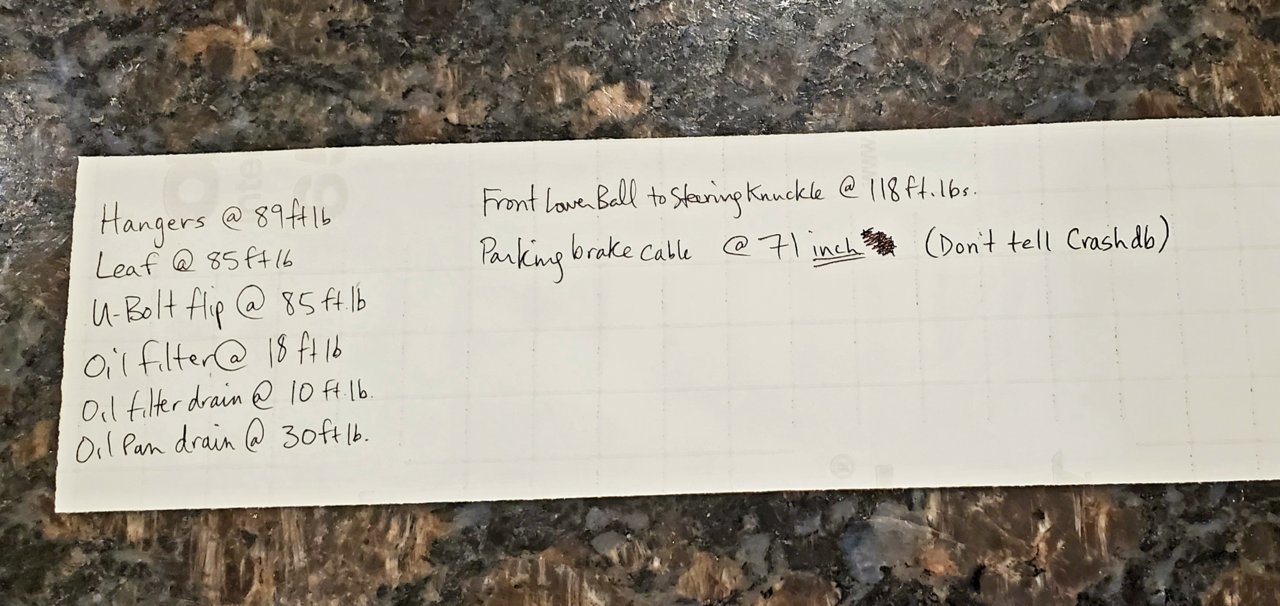 Hangers @ 89 ft lb
Leaf @ 85 ft lb
U-Bolt flip @ 85 ft.lb
Oil filter @ 18 ft lb
Oil filter drain @ 10 ft.lb.
Oil Pan drain @ 30 ft lb.
Front Lower Ball to Steering Knuckle @ 118 ft.lbs.
Parking brake cable @ 71 inch (Don't tell Crashdb)